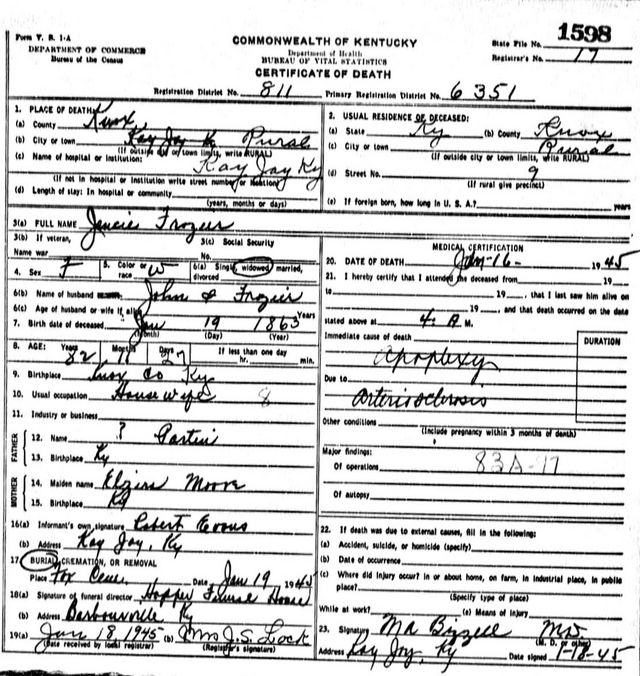 Form V. S. 1-A
DEPARTMENT OF COMMERCE
Bureau of the Census
COMMONWEALTH OF KENTUCKY
Department of Health
BUREAU OF VITAL STATISTICS
CERTIFICATE OF DEATH
1598
State File No.
Registrar's No. 17
Registration District No. 811 Primary Registration District No. 6351
1. PLACE OF DEATH:
(a) County Knox
(b) City or town Kay Jay Ky Rural
(If outside city or town limits, write RURAL)
(c) Name of hospital or institution: Kay Jay Ky
(If not in hospital or institution write street number or location)
(d) Length of stay: In hospital or community
(years, months or days)
2. USUAL RESIDENCE OF DECEASED:
(a) State Ky (b) County Knox
(c) City or town Rural
(If outside city or town limits, write RURAL)
(d) Street No. 9
(If rural give precinct)
(e) If foreign born, how long in U. S. A.? years
3(a) FULL NAME Frozier
3(b) If veteran, 3(c) Social Security
Name war No.
4. Sex F 5. Color or race W 6(a) Single, widowed, married, divorced
6(b) Name of husband John Frozier
6(c) Age of husband or wife if alive Years
7. Birth date of deceased Jan 19 1863
(Month) (Day) (Year)
8. AGE: Years Months Days If less than one day
82 11 27 hr. min.
9. Birthplace Knox Co Ky
10. Usual occupation House wife 8
11. Industry or business
FATHER
12. Name ? Partin
13. Birthplace Ky
MOTHER
14. Maiden name Moore
15. Birthplace Ky
16(a) Informant's own signature Robert Evans
(b) Address Kay Jay, Ky
17 BURIAL, CREMATION, OR REMOVAL
Place Fox Cem. Date Jan 19 1945
18(a) Signature of funeral director Hopper Funeral House
(b) Address Barbourville Ky
19(a) Jan 18 1945 (b) Mrs J. S. Lock
(Date received by local registrar) (Registrar's signature)
MEDICAL CERTIFICATION
20. DATE OF DEATH Jan-16- 1945
21. I hereby certify that I attended the deceased from 19
to 19 , that I last saw him alive on
19 , and that death occurred on the date
stated above at 4 A M.
Immediate cause of death DURATION
Apoplexy
Due to
arteriosclerosis
Other conditions
(Include pregnancy within 3 months of death)
Major findings:
Of operations 83A-97
Of autopsy
22. If death was due to external causes, fill in the following:
(a) Accident, suicide, or homicide (specify)
(b) Date of occurrence
(c) Where did injury occur? in or about home, on farm, in industrial place, in public
place?
(Specify type of place)
While at work? (e) Means of injury
23. Signature M D Bizzell MD
(M. D. or other)
Address Kay Jay, Ky Date signed 1-18-45